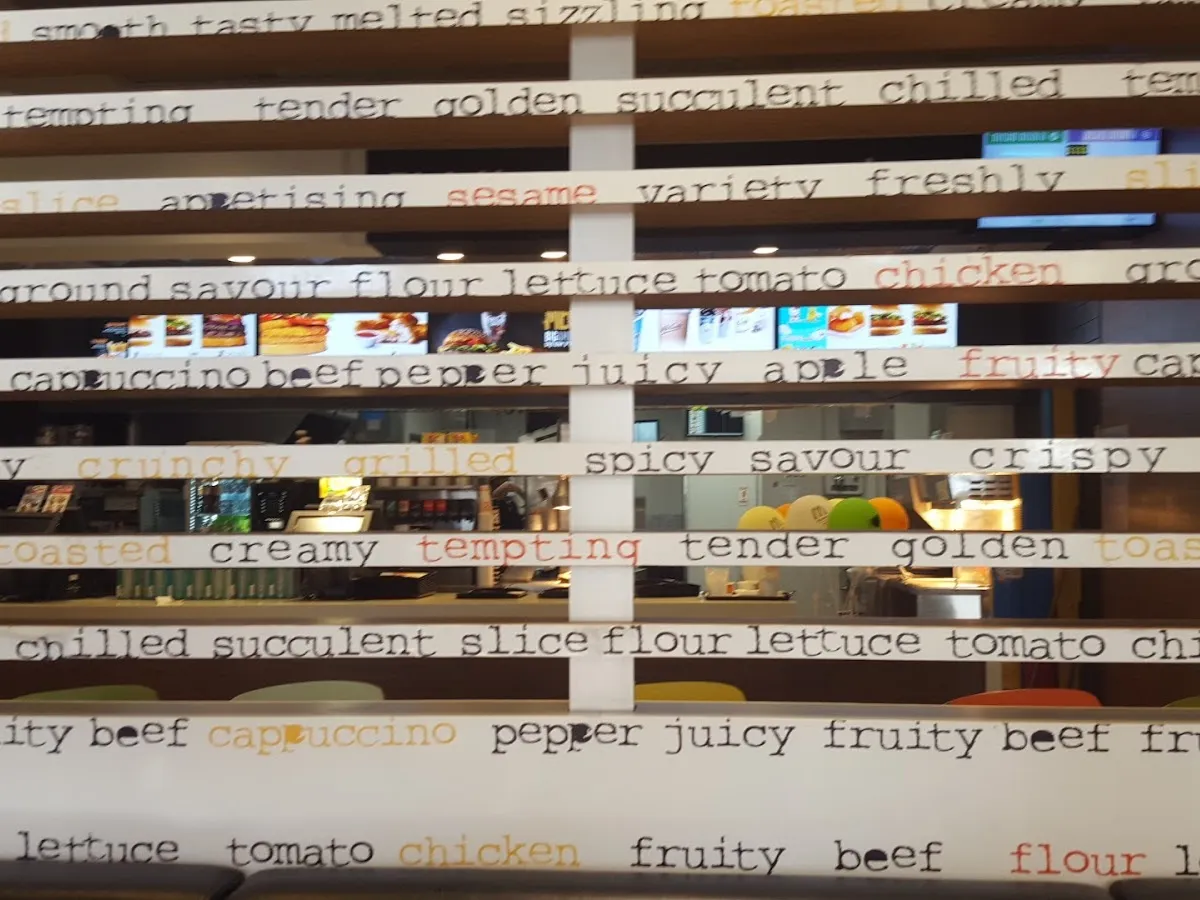 smooth tasty melted sizzling toasted creamy
tempting tender golden succulent chilled tem
slice appetising sesame variety freshly sli
ground savour flour lettuce tomato chicken gro
cappuccino beef pepper juicy apple fruity cap
y crunchy grilled spicy savour crispy
toasted creamy tempting tender golden toas
chilled succulent slice flour lettuce tomato chi
ity beef cappuccino pepper juicy fruity beef fru
lettuce tomato chicken fruity beef flour l